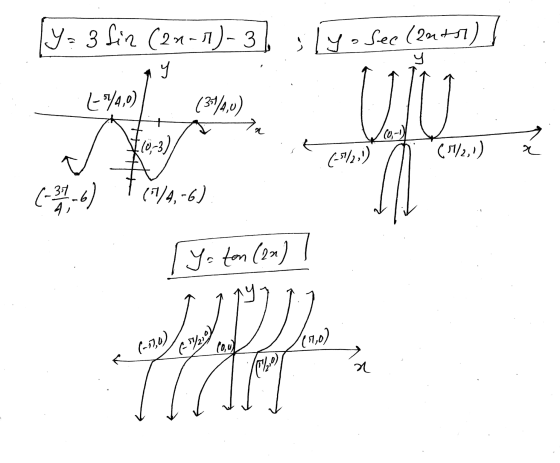 y = 3 Sin (2x - π) - 3 ; y = Sec (2x + π)
y
(-π/4, 0)
(3π/4, 0)
x
(0, -3)
(-3π/4, -6)
(π/4, -6)
y
(0, -1)
(-π/2, 1)
(π/2, 1)
x
y = tan (2x)
y
(-π, 0)
(-π/2, 0)
(0, 0)
(π/2, 0)
(π, 0)
x